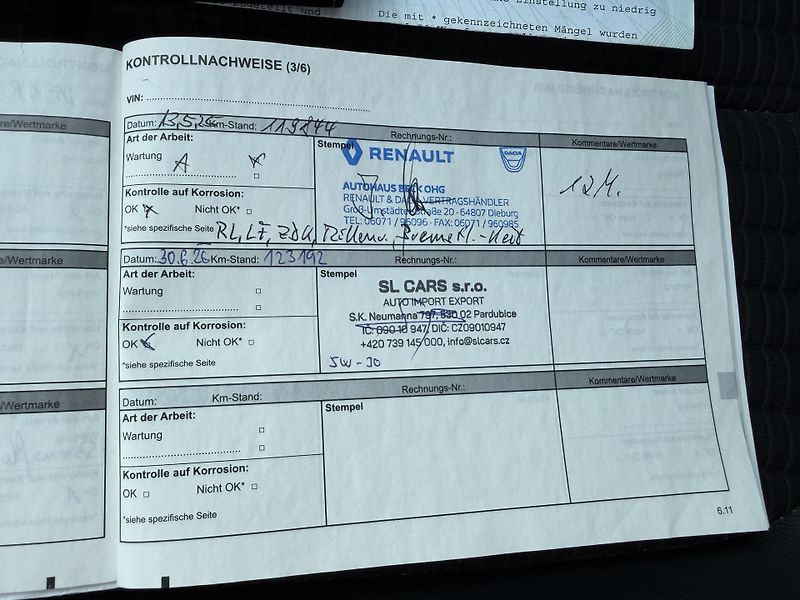 Einstellung zu niedrig
Die mit * gekennzeichneten Mängel wurden
KONTROLLNACHWEISE (3/6)
VIN:
Datum: 13.5.26 Km-Stand: 119844 Rechnungs-Nr.: Kommentare/Wertmarke
Art der Arbeit: Stempel
RENAULT DACIA
Wartung A
AUTOHAUS BECK OHG
12 M.
Kontrolle auf Korrosion:
RENAULT & DACIA VERTRAGSHÄNDLER
OK Nicht OK*
Groß-Umstädter Straße 20 · 64807 Dieburg
TEL: 06071 / 96096 · FAX: 06071 / 960985
*siehe spezifische Seite
Datum: 30.6.26 Km-Stand: 123192 Rechnungs-Nr.: Kommentare/Wertmarke
Art der Arbeit: Stempel
SL CARS s.r.o.
Wartung
AUTO IMPORT EXPORT
S.K. Neumanna 797, 530 02 Pardubice
Kontrolle auf Korrosion:
IČ: 090 10 947, DIČ: CZ09010947
OK Nicht OK*
+420 739 145 000, info@slcars.cz
*siehe spezifische Seite
5W-30
Datum: Km-Stand: Rechnungs-Nr.: Kommentare/Wertmarke
Art der Arbeit: Stempel
Wartung
Kontrolle auf Korrosion:
OK Nicht OK*
*siehe spezifische Seite
6.11